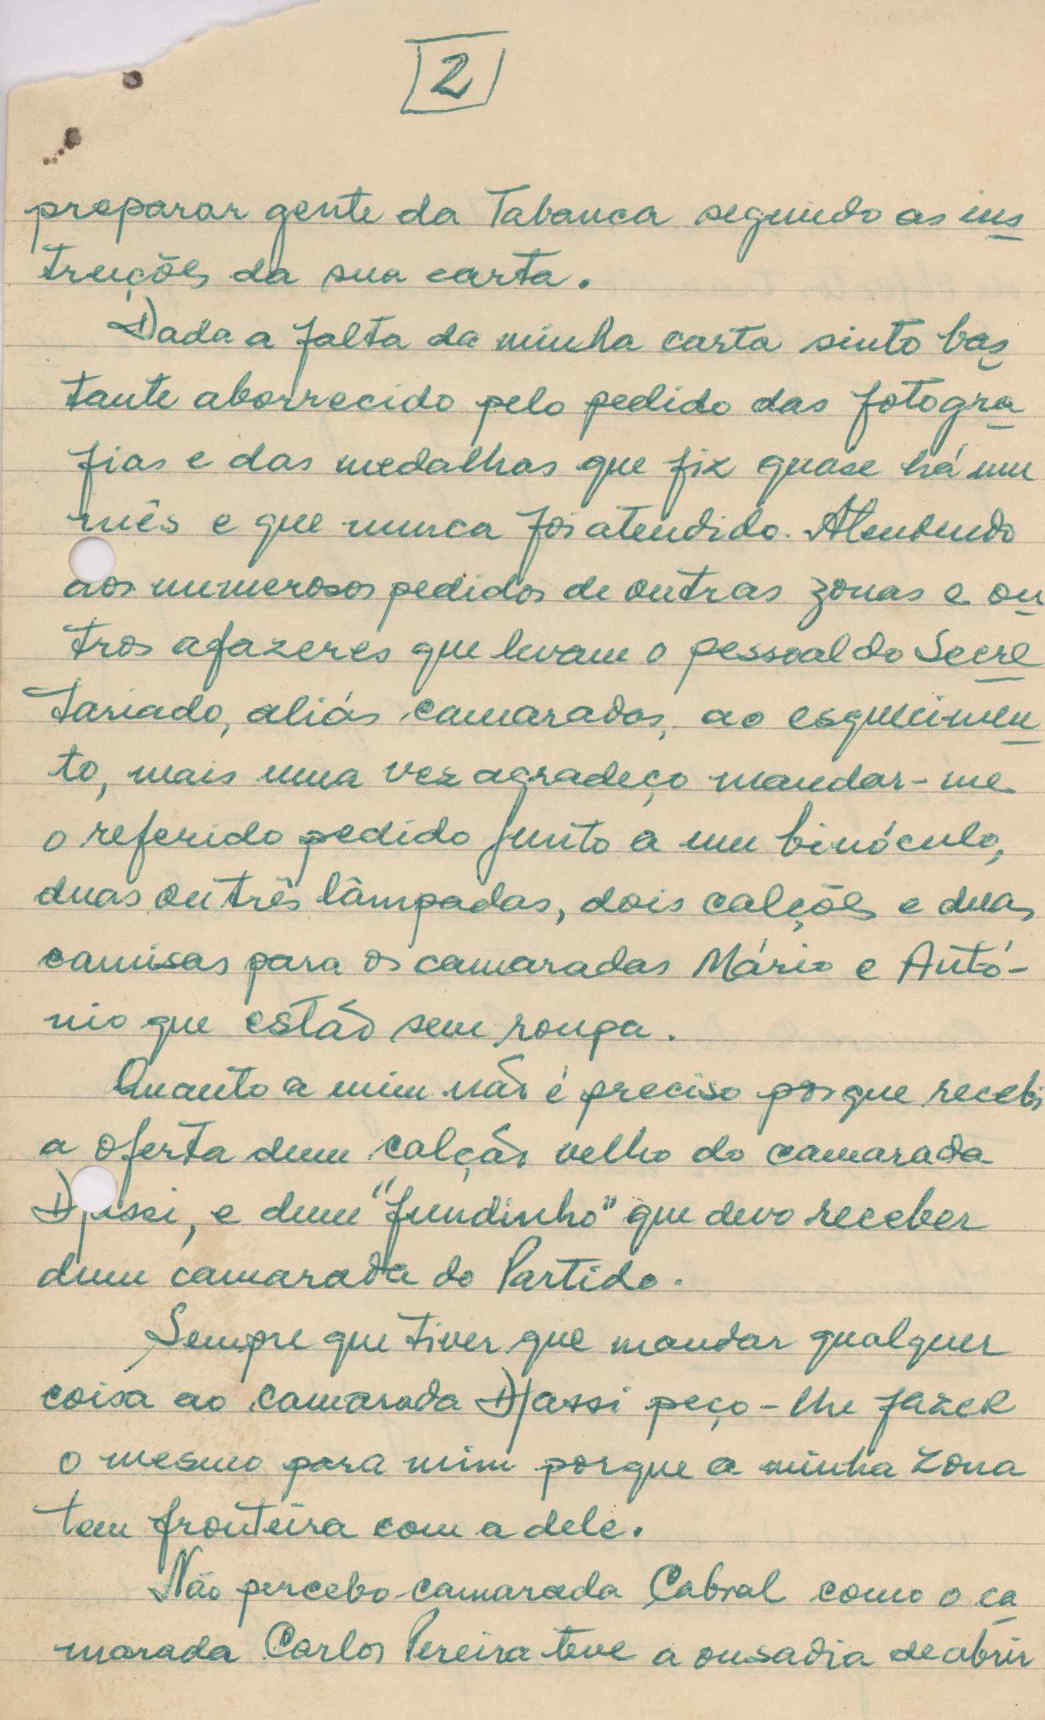 2
preparar gente da Tabanca segundo as ins
truções da sua carta.
Dada a falta da minha carta sinto bas
tante aborrecido pelo pedido das fotogra
fias e das medalhas que fiz quase há um
mês e que nunca foi atendido. Atendendo
aos numerosos pedidos de outras zonas e ou
tros afazeres que levam o pessoal do Secre
tariado, aliás camaradas, ao esquecimen
to, mais uma vez agradeço mandar-me
o referido pedido junto a um binóculo,
duas ou três lâmpadas, dois calções e duas
camisas para os camaradas Mário e Antó-
nio que estão sem roupa.
Quanto a mim não é preciso porque recebi
a oferta dum calção velho do camarada
Djassi, e dum "fundinho" que devo receber
dum camarada do Partido.
Sempre que tiver que mandar qualquer
coisa ao camarada Djassi peço-lhe fazer
o mesmo para mim porque a minha zona
tem fronteira com a dele.
Não percebo camarada Cabral como o ca
marada Carlos Pereira teve a ousadia de abrir